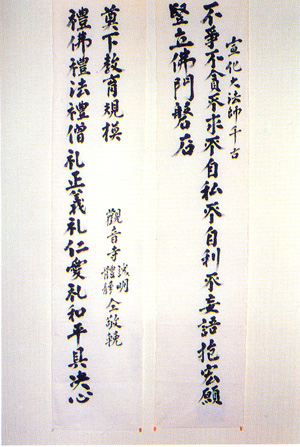 宣化大法師千古
不爭不貪不求不自私不自利不妄語抱宏願
豎立佛門磐石
禮佛禮法禮僧礼正義礼仁愛礼和平具决心
奠下教育規模
觀音寺
誠明
體靜
仝敬輓